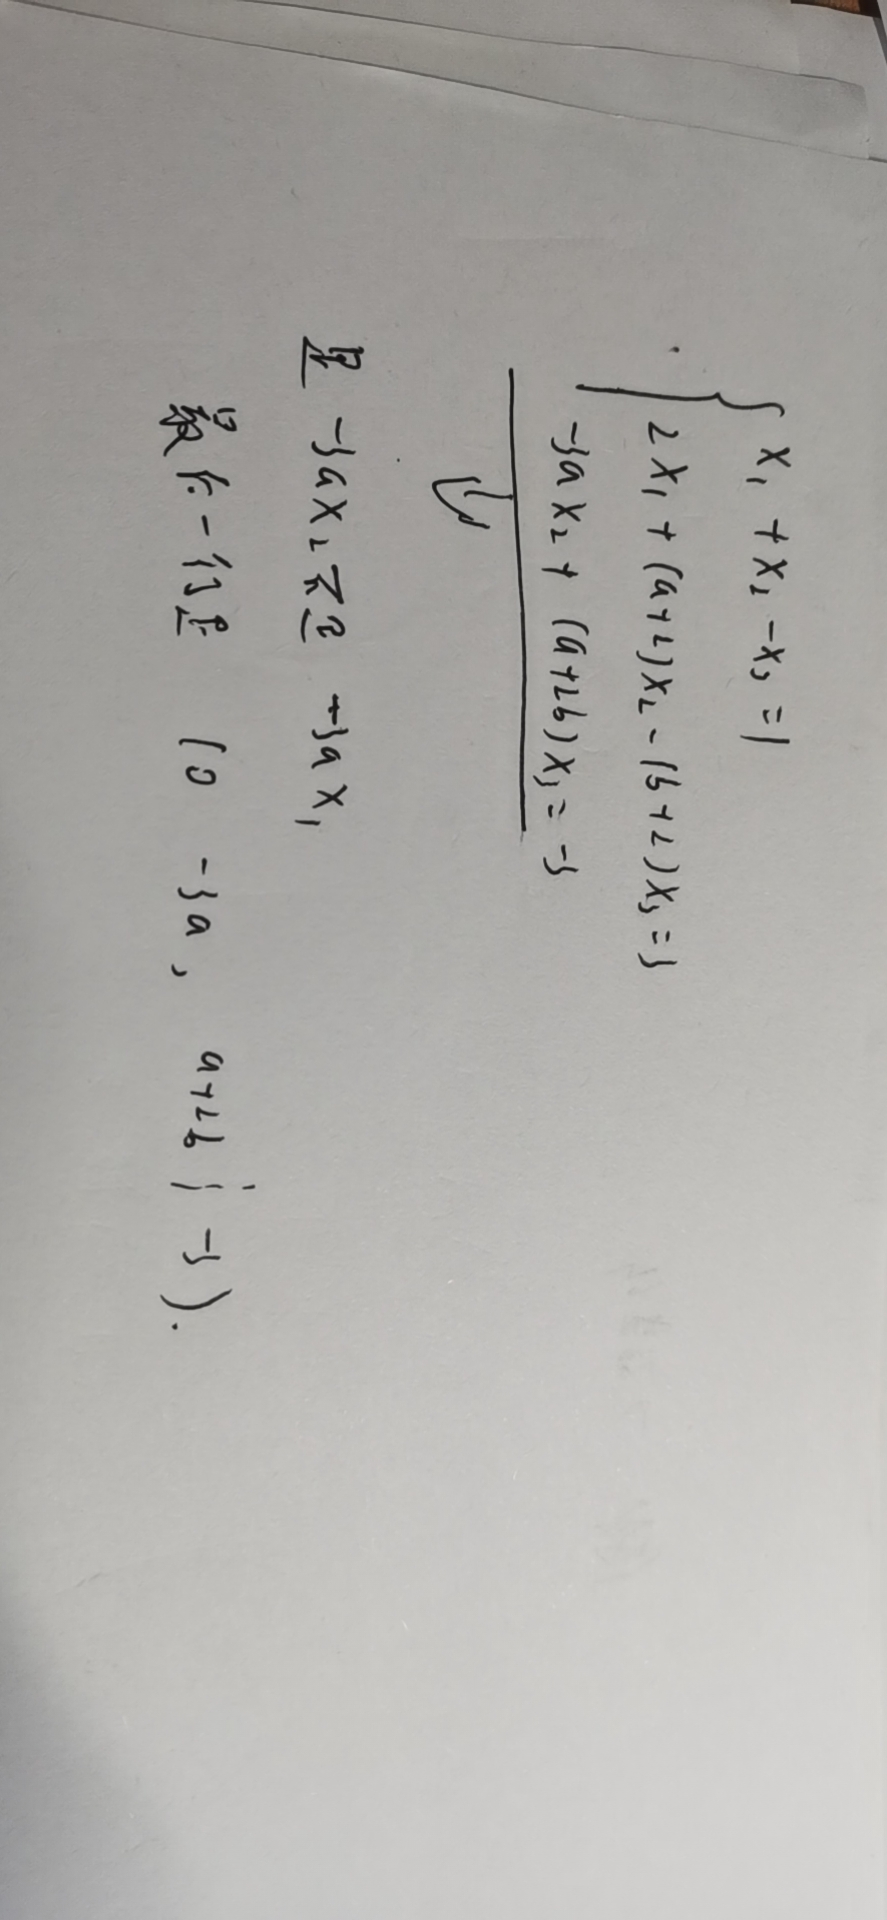 x₁ + x₂ - x₃ = 1
2x₁ + (a+2)x₂ - (b+2)x₃ = 3
-3ax₂ + (a+2b)x₃ = -3
是 -3ax₂ 不是 -3ax₁
最后一行是 (0 -3a, a+2b ¦ -3).